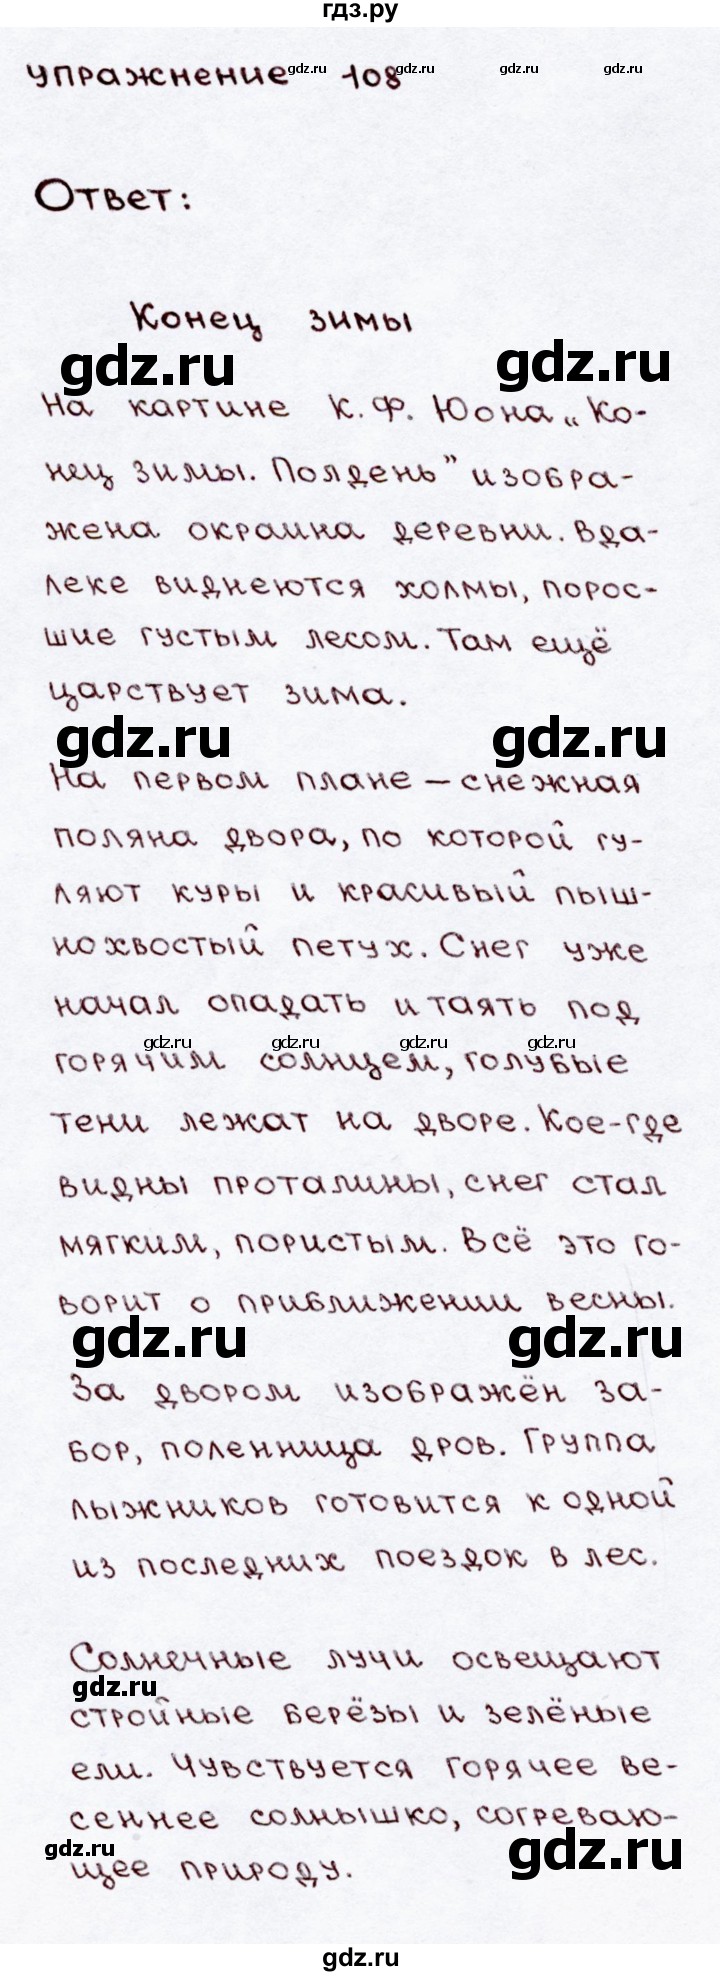 гдз.ру
упражнение 108
gdz.ru gdz.ru gdz.ru gdz.ru
Ответ:
Конец зимы
gdz.ru gdz.ru
На картине К. Ф. Юона „Ко-
нец зимы. Полдень" изобра-
жена окраина деревни. Вда-
леке виднеются холмы, порос-
шие густым лесом. Там ещё
царствует зима.
gdz.ru gdz.ru
На первом плане – снежная
поляна двора, по которой гу-
ляют куры и красивый пыш-
нохвостый петух. Снег уже
начал опадать и таять под
gdz.ru gdz.ru gdz.ru gdz.ru
горячим солнцем, голубые
тени лежат на дворе. Кое-где
видны проталины, снег стал
мягким, пористым. Всё это го-
ворит о приближении весны.
gdz.ru gdz.ru
За двором изображён за-
бор, поленница дров. Группа
лыжников готовится к одной
из последних поездок в лес.
Солнечные лучи освещают
gdz.ru
стройные берёзы и зелёные
ели. Чувствуется горячее ве-
сеннее солнышко, согреваю-
gdz.ru gdz.ru
щее природу.
gdz.ru